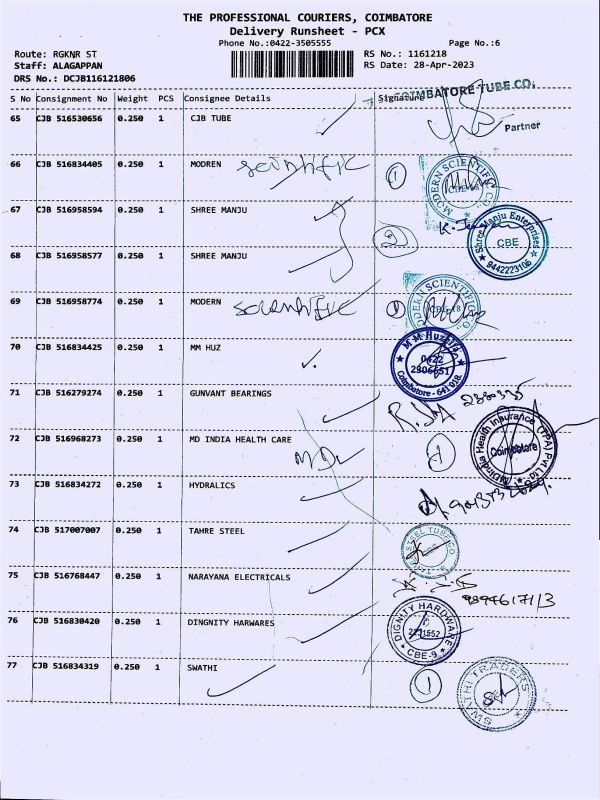 THE PROFESSIONAL COURIERS, COIMBATORE
Delivery Runsheet - PCX
Phone No.:0422-3505555 Page No.:6
Route: RGKNR ST RS No.: 1161218
Staff: ALAGAPPAN RS Date: 28-Apr-2023
DRS No.: DCJB116121806
S No Consignment No Weight PCS Consignee Details Signature
COIMBATORE TUBE CO.
65 CJB 516530656 0.250 1 CJB TUBE
Partner
66 CJB 516834405 0.250 1 MODREN scientific 1
MODERN SCIENTIFIC CO.
67 CJB 516958594 0.250 1 SHREE MANJU
2
Shree Manju Enterprises
CBE
9442223106
68 CJB 516958577 0.250 1 SHREE MANJU
69 CJB 516958774 0.250 1 MODERN scientific
MODERN SCIENTIFIC CO.
70 CJB 516834425 0.250 1 MM HUZ
0422
Coimbatore - 641 018.
71 CJB 516279274 0.250 1 GUNVANT BEARINGS
72 CJB 516968273 0.250 1 MD INDIA HEALTH CARE
MDIndia Health Insurance (TPA) Pvt Ltd
Coimbatore
73 CJB 516834272 0.250 1 HYDRALICS
74 CJB 517007007 0.250 1 TAHRE STEEL
75 CJB 516768447 0.250 1 NARAYANA ELECTRICALS
76 CJB 516830420 0.250 1 DINGNITY HARWARES
DIGNITY HARDWARE
CBE-9
77 CJB 516834319 0.250 1 SWATHI 1
SWATHI TRADERS